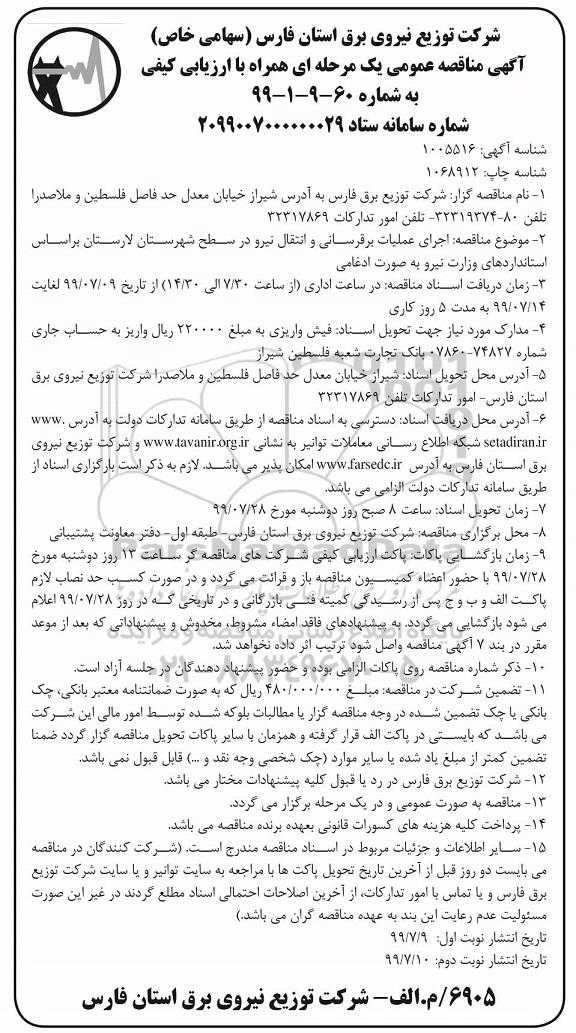 شرکت توزیع نیروی برق استان فارس (سهامی خاص)
آگهی مناقصه عمومی یک مرحله ای همراه با ارزیابی کیفی
به شماره ۶۰-۹-۱-۹۹
شماره سامانه ستاد ۲۰۹۹۰۰۷۰۰۰۰۰۰۰۲۹
شناسه آگهی: ۱۰۰۵۵۱۶
شناسه چاپ: ۱۰۶۸۹۱۲
۱- نام مناقصه گزار: شرکت توزیع برق فارس به آدرس شیراز خیابان معدل حد فاصل فلسطین و ملاصدرا
تلفن ۸۰-۳۲۳۱۹۳۷۴- تلفن امور تدارکات ۳۲۳۱۷۸۶۹
۲- موضوع مناقصه: اجرای عملیات برقرسانی و انتقال نیرو در سطح شهرستان لارستان براساس
استانداردهای وزارت نیرو به صورت ادغامی
۳- زمان دریافت اسناد مناقصه: در ساعت اداری (از ساعت ۷/۳۰ الی ۱۴/۳۰) از تاریخ ۹۹/۰۷/۰۹ لغایت
۹۹/۰۷/۱۴ به مدت ۵ روز کاری
۴- مدارک مورد نیاز جهت تحویل اسناد: فیش واریزی به مبلغ ۲۲۰۰۰۰ ریال واریز به حساب جاری
شماره ۷۴۸۲۷-۰۷۸۶۰ بانک تجارت شعبه فلسطین شیراز
۵- آدرس محل تحویل اسناد: شیراز خیابان معدل حد فاصل فلسطین و ملاصدرا شرکت توزیع نیروی برق
استان فارس- امور تدارکات تلفن ۳۲۳۱۷۸۶۹
۶- آدرس محل دریافت اسناد: دسترسی به اسناد مناقصه از طریق سامانه تدارکات دولت به آدرس www.
setadiran.ir شبکه اطلاع رسانی معاملات توانیر به نشانی www.tavanir.org.ir و شرکت توزیع نیروی
برق استان فارس به آدرس www.farsedc.ir امکان پذیر می باشد. لازم به ذکر است بارگزاری اسناد از
طریق سامانه تدارکات دولت الزامی می باشد.
۷- زمان تحویل اسناد: ساعت ۸ صبح روز دوشنبه مورخ ۹۹/۰۷/۲۸
۸- محل برگزاری مناقصه: شرکت توزیع نیروی برق استان فارس- طبقه اول- دفتر معاونت پشتیبانی
۹- زمان بازگشایی پاکات: پاکت ارزیابی کیفی شرکت های مناقصه گر ساعت ۱۳ روز دوشنبه مورخ
۹۹/۰۷/۲۸ با حضور اعضاء کمیسیون مناقصه باز و قرائت می گردد و در صورت کسب حد نصاب لازم
پاکت الف و ب و ج پس از رسیدگی کمیته فنی بازرگانی و در تاریخی که در روز ۹۹/۰۷/۲۸ اعلام
می شود بازگشایی می گردد. به پیشنهادهای فاقد امضاء مشروط، مخدوش و پیشنهاداتی که بعد از موعد
مقرر در بند ۷ آگهی مناقصه واصل شود ترتیب اثر داده نخواهد شد.
۱۰- ذکر شماره مناقصه روی پاکات الزامی بوده و حضور پیشنهاد دهندگان در جلسه آزاد است.
۱۱- تضمین شرکت در مناقصه: مبلغ ۴۸۰/۰۰۰/۰۰۰ ریال که به صورت ضمانتنامه معتبر بانکی، چک
بانکی یا چک تضمین شده در وجه مناقصه گزار یا مطالبات بلوکه شده توسط امور مالی این شرکت
می باشد که بایستی در پاکت الف قرار گرفته و همزمان با سایر پاکات تحویل مناقصه گزار گردد ضمنا
تضمین کمتر از مبلغ یاد شده یا سایر موارد (چک شخصی وجه نقد و ...) قابل قبول نمی باشد.
۱۲- شرکت توزیع برق فارس در رد یا قبول کلیه پیشنهادات مختار می باشد.
۱۳- مناقصه به صورت عمومی و در یک مرحله برگزار می گردد.
۱۴- پرداخت کلیه هزینه های کسورات قانونی بعهده برنده مناقصه می باشد.
۱۵- سایر اطلاعات و جزئیات مربوط در اسناد مناقصه مندرج است. (شرکت کنندگان در مناقصه
می بایست دو روز قبل از آخرین تاریخ تحویل پاکت ها با مراجعه به سایت توانیر و یا سایت شرکت توزیع
برق فارس و یا تماس با امور تدارکات، از آخرین اصلاحات احتمالی اسناد مطلع گردند در غیر این صورت
مسئولیت عدم رعایت این بند به عهده مناقصه گران می باشد.)
تاریخ انتشار نوبت اول: ۹۹/۷/۹
تاریخ انتشار نوبت دوم: ۹۹/۷/۱۰
۶۹۰۵/م.الف- شرکت توزیع نیروی برق استان فارس